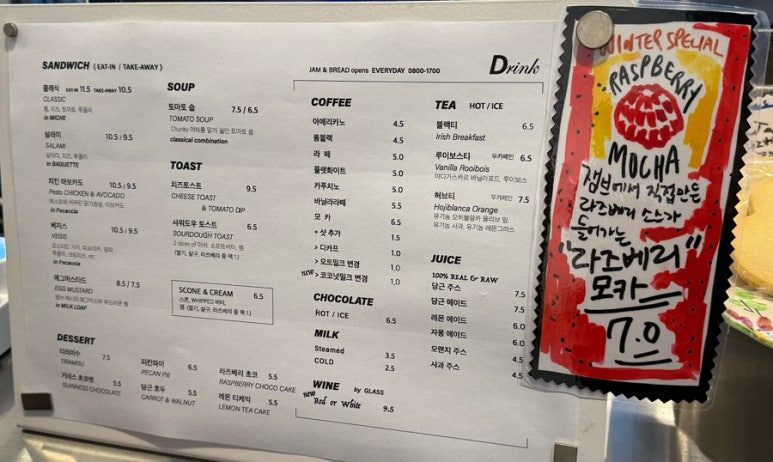 SANDWICH ( EAT-IN / TAKE-AWAY )
클래식 EAT-IN 11.5 TAKE-AWAY 10.5
CLASSIC
햄, 치즈, 토마토, 루꼴라
in MICHE
살라미 10.5 / 9.5
SALAMI
살라미, 치즈, 루꼴라
in BAGUETTE
치킨 아보카도 10.5 / 9.5
Pesto CHICKEN & AVOCADO
in Focaccia
베지스 10.5 / 9.5
VEGIS
in Focaccia
에그머스타드 8.5 / 7.5
EGG MUSTARD
in MILK LOAF
SOUP
토마토 숩 7.5 / 6.5
TOMATO SOUP
Chunky 야채를 맑게 끓인 토마토 숩
classical combination
TOAST
치즈토스트 9.5
CHEESE TOAST
& TOMATO DIP
사워도우 토스트 6.5
SOURDOUGH TOAST
2 slices of 미쉬, 소프트버터, 쨈
(딸기, 살구, 라즈베리 중 택 1.)
SCONE & CREAM 6.5
스콘, WHIPPED 버터,
쨈 (딸기, 살구, 라즈베리 중 택 1.)
DESSERT
티라미수 7.5
TIRAMISU
기네스 쵸코벳 5.5
GUINNESS CHOCOLATE
피칸파이 6.5
PECAN PIE
당근 호두 5.5
CARROT & WALNUT
라즈베리 초코 5.5
RASPBERRY CHOCO CAKE
레몬 티케익 5.5
LEMON TEA CAKE
JAM & BREAD opens EVERYDAY 0800-1700
Drink
COFFEE
아메리카노 4.5
롱블랙 4.5
라 떼 5.0
플랫화이트 5.0
카푸치노 5.0
바닐라라떼 5.5
모 카 6.5
+ 샷 추가 1.5
> 디카프 1.0
> 오트밀크 변경 1.0
new > 코코넛밀크 변경 1.0
CHOCOLATE
HOT / ICE 6.5
MILK
Steamed 3.5
COLD 2.5
WINE by GLASS
new Red or White 9.5
TEA HOT / ICE
블랙티 6.5
Irish Breakfast
루이보스티 무카페인 6.5
Vanilla Rooibois
마다가스카르 바닐라포드, 루이보스
허브티 무카페인 7.5
Hojiblanca Orange
유기농 오히블랑카 올리브 잎,
유기농 사과, 유기농 레몬그라스
JUICE
100% REAL & RAW
당근 주스 7.5
당근 에이드 7.5
레몬 에이드 6.0
자몽 에이드 6.0
오렌지 주스 4.5
사과 주스 4.5
WINTER SPECIAL
RASPBERRY
MOCHA
잼브에서 직접만든
라즈베리 소스가
들어가는
"라즈베리"
모카
7.0